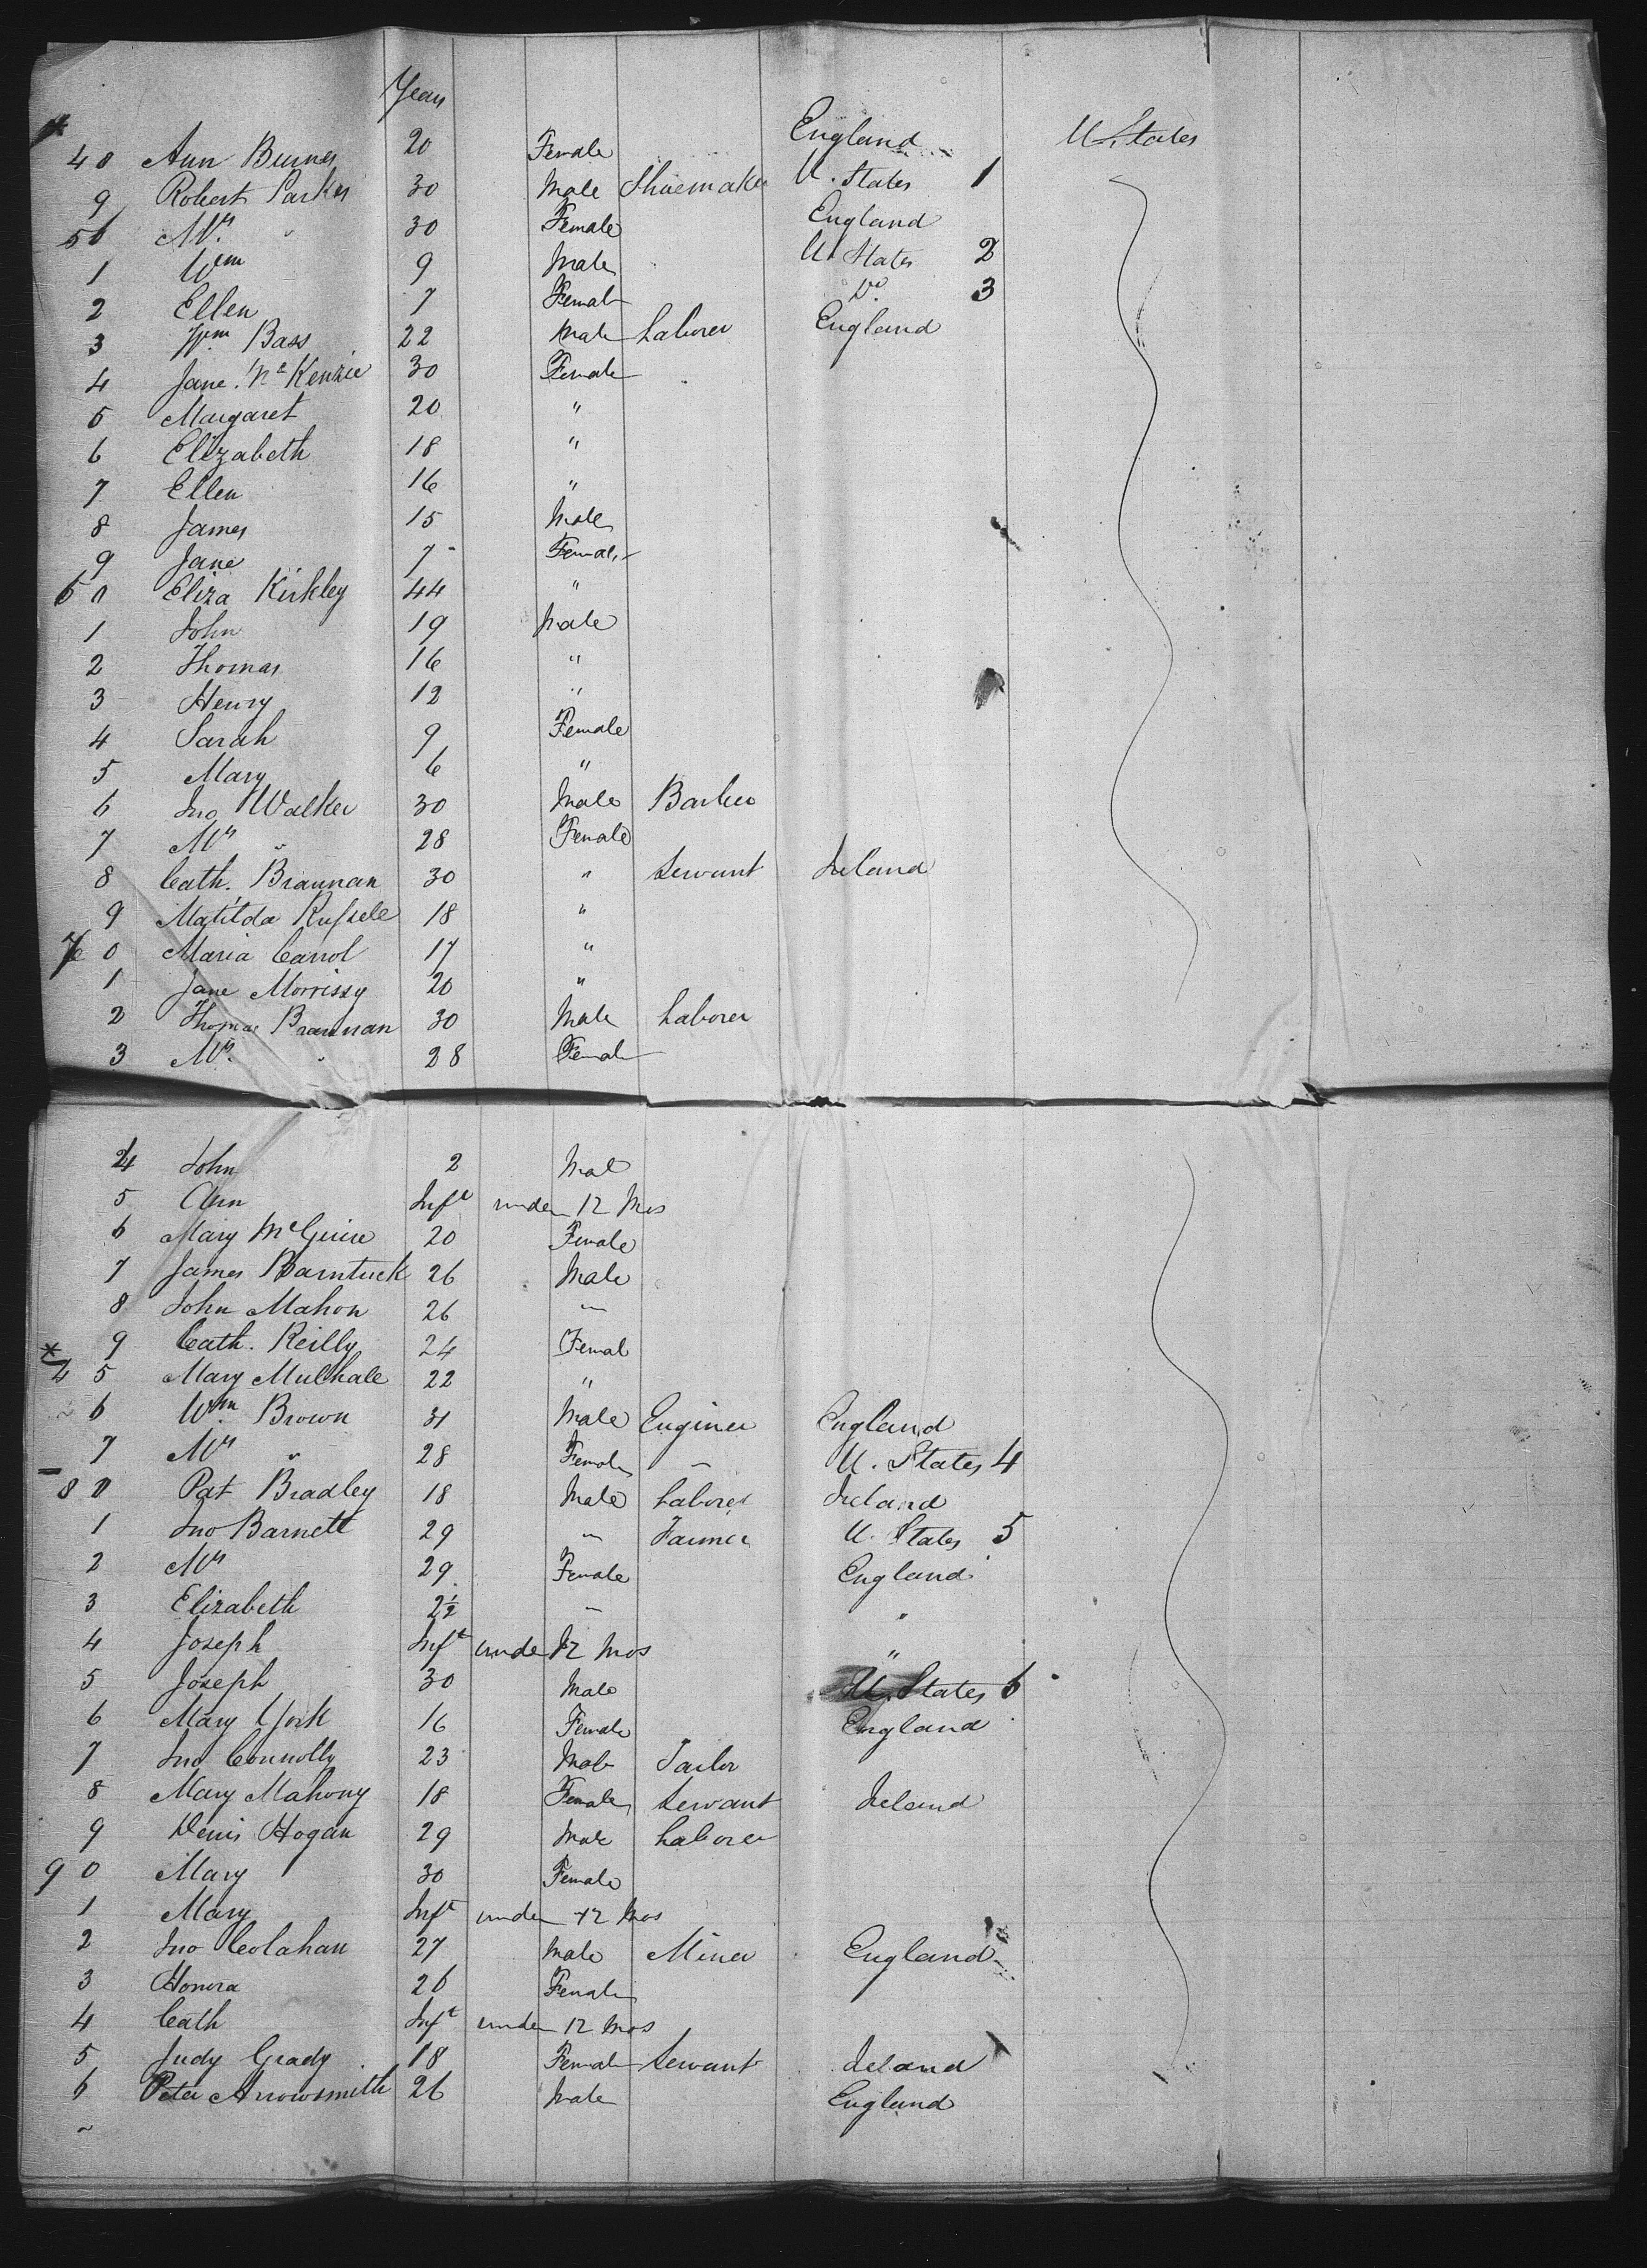 Years
40 Ann Burnes 20 Female England U. States
9 Robert Parker 30 Male Shoemaker U. States 1
50 Mrs. " 30 Female England
1 Wm 9 Male U. States 2
2 Ellen 7 Female Do. 3
3 Wm. Bass 22 Male Laborer England
4 Jane McKenzie 30 Female
5 Margaret 20 "
6 Elizabeth 18 "
7 Ellen 16 "
8 James 15 Male
9 Jane 7 Female
60 Eliza Kirkley 44 "
1 John 19 Male
2 Thomas 16 "
3 Henry 12 "
4 Sarah 9 Female
5 Mary 6 "
6 Jno Walker 30 Male Barber
7 Mrs " 28 Female
8 Cath. Brannan 30 " Servant Ireland
9 Matilda Russele 18 "
70 Maria Carrol 17 "
1 Jane Morrissy 20 "
2 Thomas Brannan 30 Male Laborer
3 Mrs. " 28 Female
4 John 2 Mal
5 Ann Inft under 12 Mos
6 Mary McGuire 20 Female
7 James Barntuck 26 Male
8 John Mahon 26 "
9 Cath. Reilly 24 Femal
* 5 Mary Mulhale 22 "
6 Wm. Brown 31 Male Enginer England
7 Mrs " 28 Female – U. States 4
80 Pat Bradley 18 Male Laborer Ireland
1 Jno Barnett 29 " Farmer U. States 5
2 Mrs 29 Female England
3 Elizabeth 2½ " "
4 Joseph Inft under 12 Mos "
5 Joseph 30 Male U. States 6
6 Mary York 16 Female England
7 Jno Connolly 23 Male Tailor
8 Mary Mahony 18 Female Servant Ireland
9 Denis Hogan 29 Male Laborer
90 Mary 30 Female
1 Mary Inft under 12 Mos
2 Jno Colahan 27 Male Miner England
3 Honora 26 Female
4 Cath Inft under 12 Mos
5 Judy Grady 18 Female Servant Ireland
6 Peter Arrowsmith 26 Male England